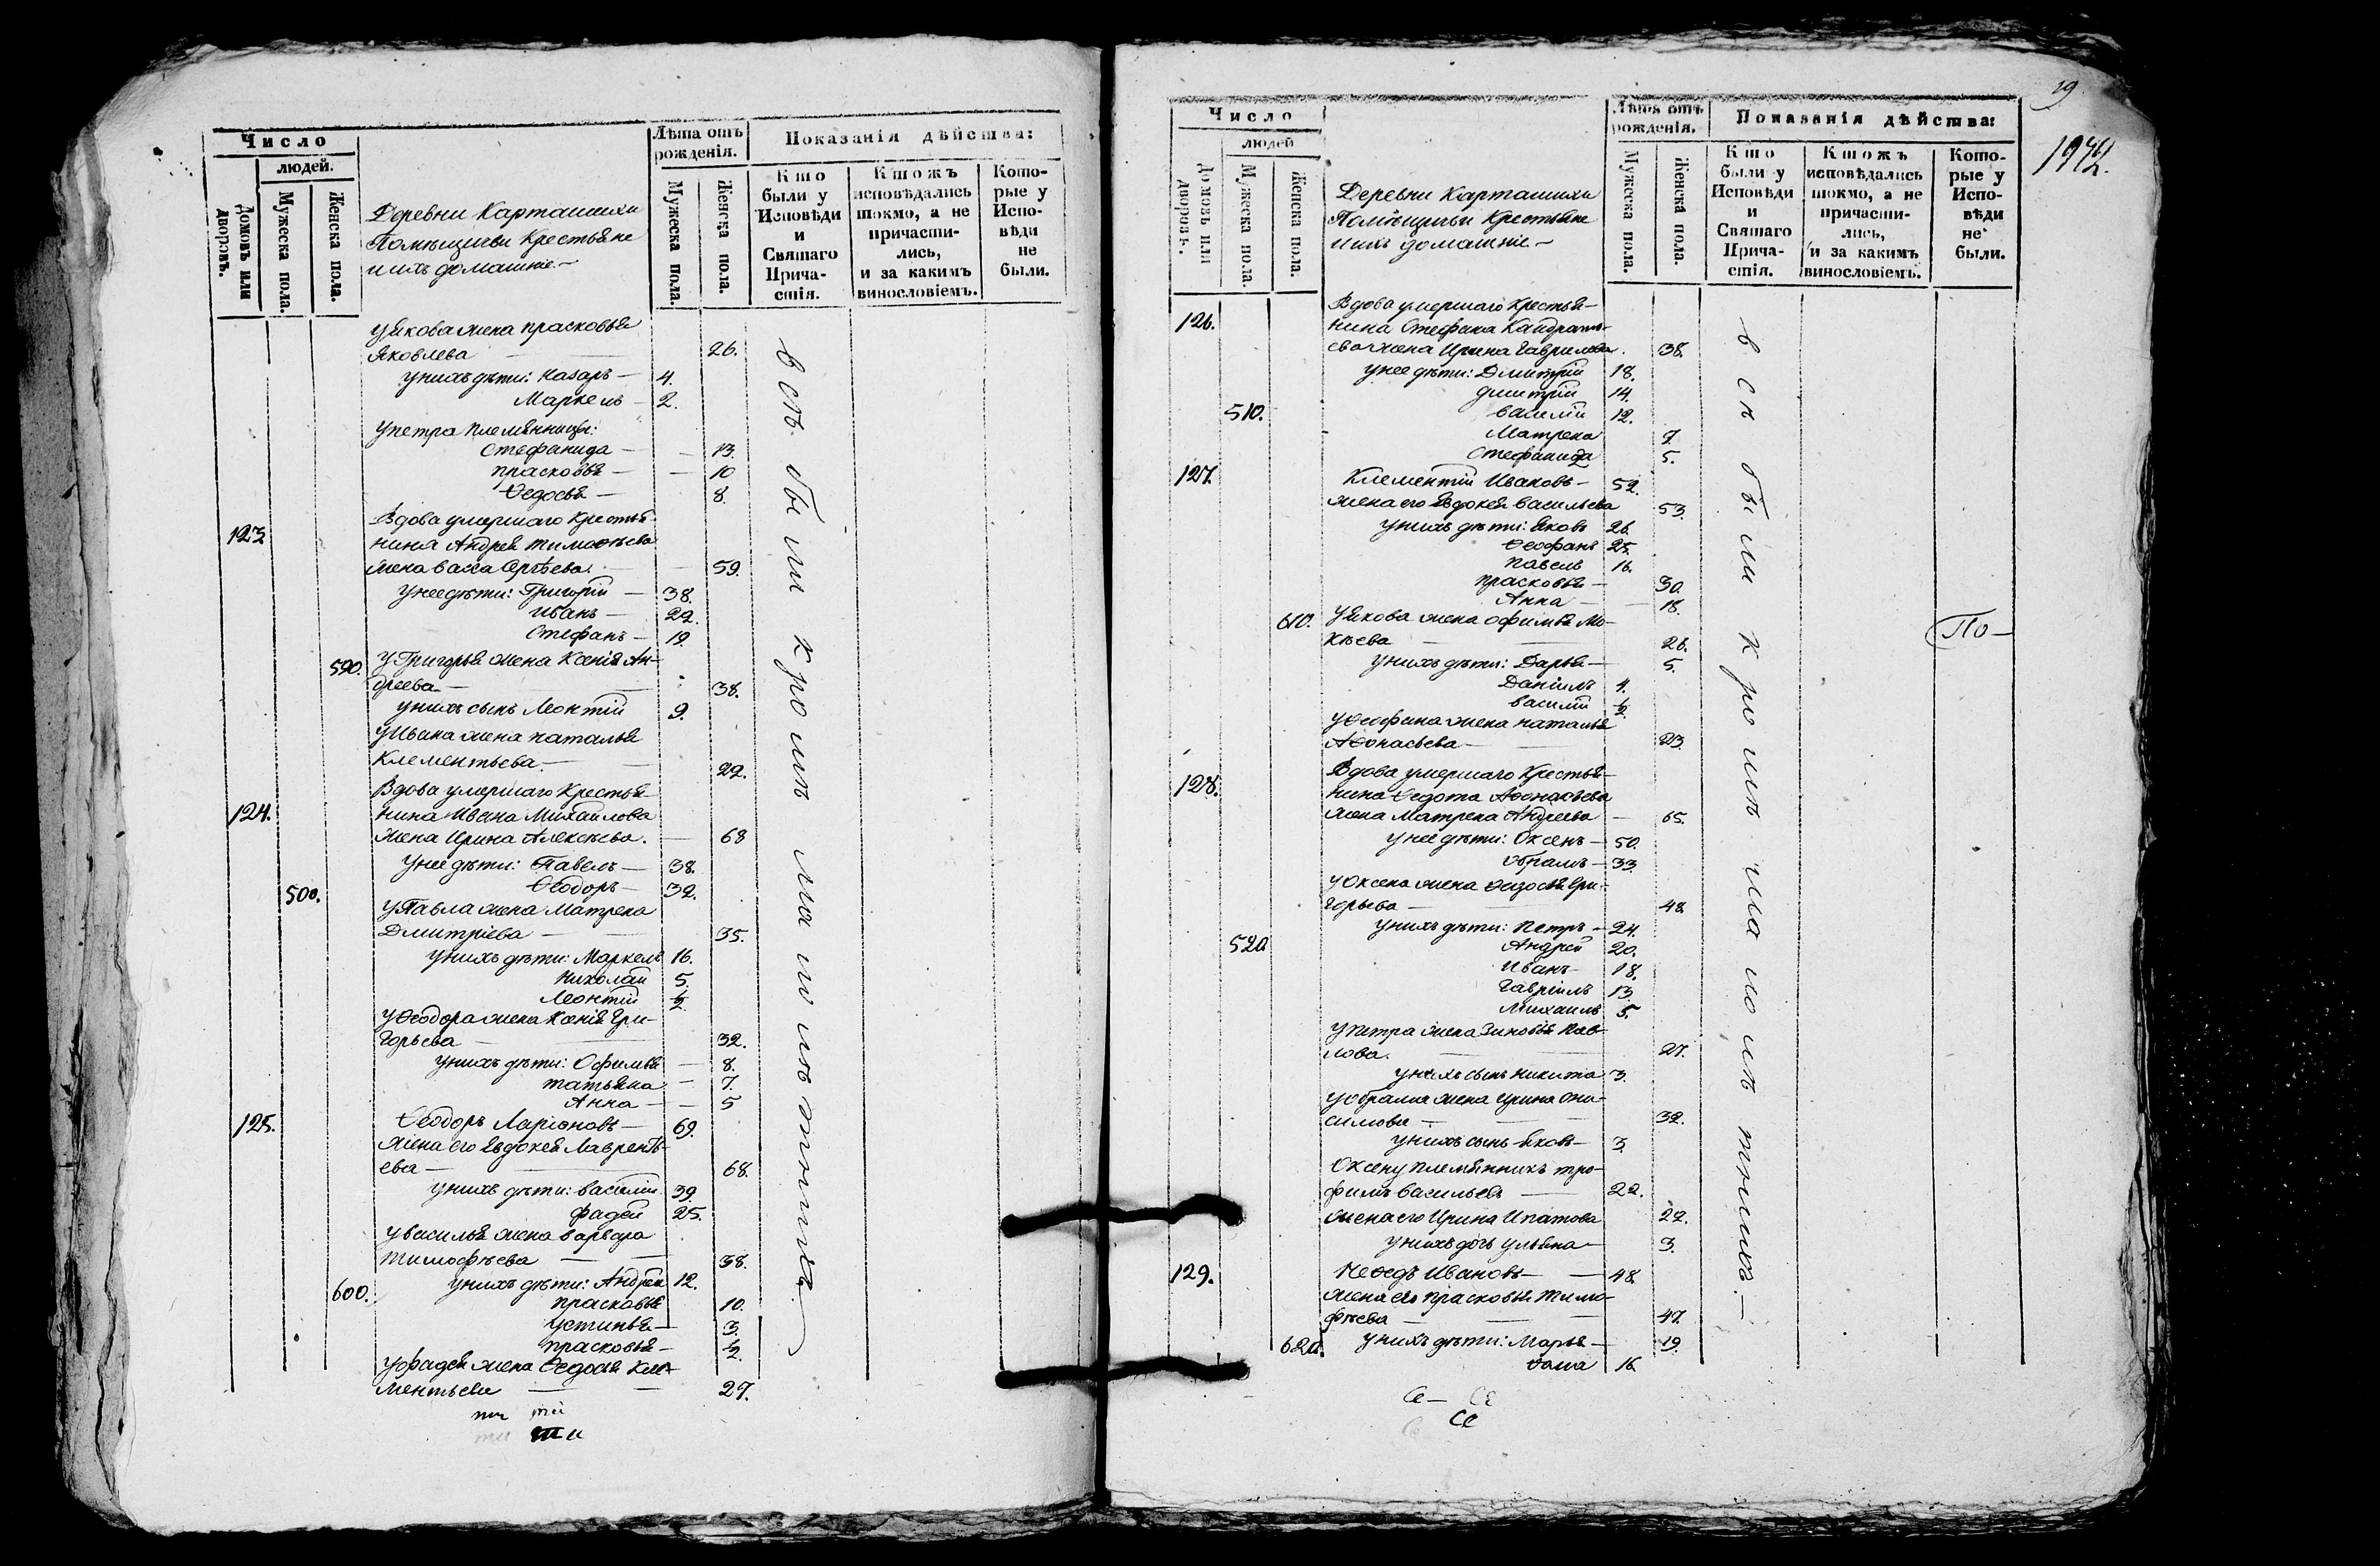 Число
людей.
Домовъ или дворовъ.
Мужеска пола.
Женска пола.
Деревни Карташихи
Помѣщичьи Крестьяне
и ихъ домашніе.—
Лѣта отъ рожденія.
Мужеска пола.
Женска пола.
Показанія дѣйства:
Кто были у Исповѣди и Святаго Причастія.
Ктожъ исповѣдались токмо, а не причастились, и за какимъ винословіемъ.
Которые у Исповѣди не были.
У Якова жена Прасковья
Яковлева — 26.
У нихъ дѣти: Назаръ — 4.
Маркелъ — 2.
У Петра племянницы:
Стефанида — 13.
Прасковья — 10
Ѳедосья — 8.
Вдова умершаго Крестья-
123 нина Андрея Тимоѳѣева
жена Васса Сергѣева. — 59.
У нее дѣти: Григорій — 38.
Иванъ — 22.
Стефанъ — 19.
590. У Григорья жена Ксенія Ан-
дреева — 38.
У нихъ сынъ Леонтій 9.
У Ивана жена Наталья
Клементьева. — 22.
Вдова умершаго Крестья-
124. нина Ивана Михайлова
жена Ирина Алексѣева. — 68
У нее дѣти: Павелъ — 38.
500. Ѳеодоръ — 32.
У Павла жена Матрена
Дмитріева — 35.
У нихъ дѣти: Маркелъ 16.
Николай 5.
Леонтій ½
У Ѳеодора жена Ксенія Гри-
горьева — 32.
У нихъ дѣти: Офимья — 8.
Татьяна — 7.
Анна — 5
125. Ѳеодоръ Ларіоновъ — 69.
Жена его Евдокея Лаврентъ-
ева — 68.
У нихъ дѣти: Василій 39.
Фадей 25.
У Василья жена Варвара
Тимофѣева — 38.
600. У нихъ дѣти: Андрей 12.
Прасковья 10.
Устинья — 3.
Прасковья — ½.
У Фадея жена Ѳедосья Кле-
ментьева — 27.
всѣ были кромѣ малолѣтныхъ
ти
19
1972.
Число
людей
Домовъ или дворовъ.
Мужеска пола.
Женска пола.
Деревни Карташихи
Помѣщичьи Крестьяне
и ихъ домашніе —
Лѣта отъ рожденія.
Мужеска пола.
Женска пола.
Показанія дѣйства:
Кто были у Исповѣди и Святаго Причастія.
Ктожъ исповѣдались токмо, а не причастились, и за какимъ винословіемъ.
Которые у Исповѣди не были.
Вдова умершаго Крестья-
126. нина Стефана Кандрать-
ева жена Ирина Гаврилова. 38.
У нее дѣти: Дмитрій 18.
Дмитрій 14.
510. Василій 12.
Матрена 7.
Стефанида 5.
127. Клементій Ивановъ — 52.
жена его Евдокея Васильева 53.
У нихъ дѣти: Яковъ 26.
Ѳеофанъ 25.
Павелъ 16.
Прасковья — 30.
Анна — 18.
610. У Якова жена Офимья Мо-
кѣева 26.
У нихъ дѣти: Дарья — 5.
Даніилъ 4.
Василій ½
У Ѳеофана жена Наталья
Аѳонасьева — 23.
Вдова умершаго Крестья-
128. нина Ѳедота Аѳонасьева
жена Матрена Андреева — 65.
У нее дѣти: Оксенъ — 50.
Обрамъ — 33.
У Оксена жена Ѳедосья Гри-
горьева — 48.
У нихъ дѣти: Петръ — 24.
520 Андрей 20.
Иванъ — 18.
Гавріилъ 13.
Михаилъ 5.
У Петра жена Зиновья Пав-
лова. — 27.
У нихъ сынъ Никита 3.
У Обрама жена Ирина Они-
симова — 32.
У нихъ сынъ Яковъ — 3.
Оксену племянникъ Тро-
фимъ Васильевъ — 22.
жена его Ирина Ипатова 22.
У нихъ дочь Ульяна — 3.
129. Меѳедъ Ивановъ — 48.
жена его Прасковья Тимо-
фѣева — 47.
620. У нихъ дѣти: Марья — 19.
Ѳома 16.
всѣ были кромѣ малолѣтныхъ. —
По —
Се